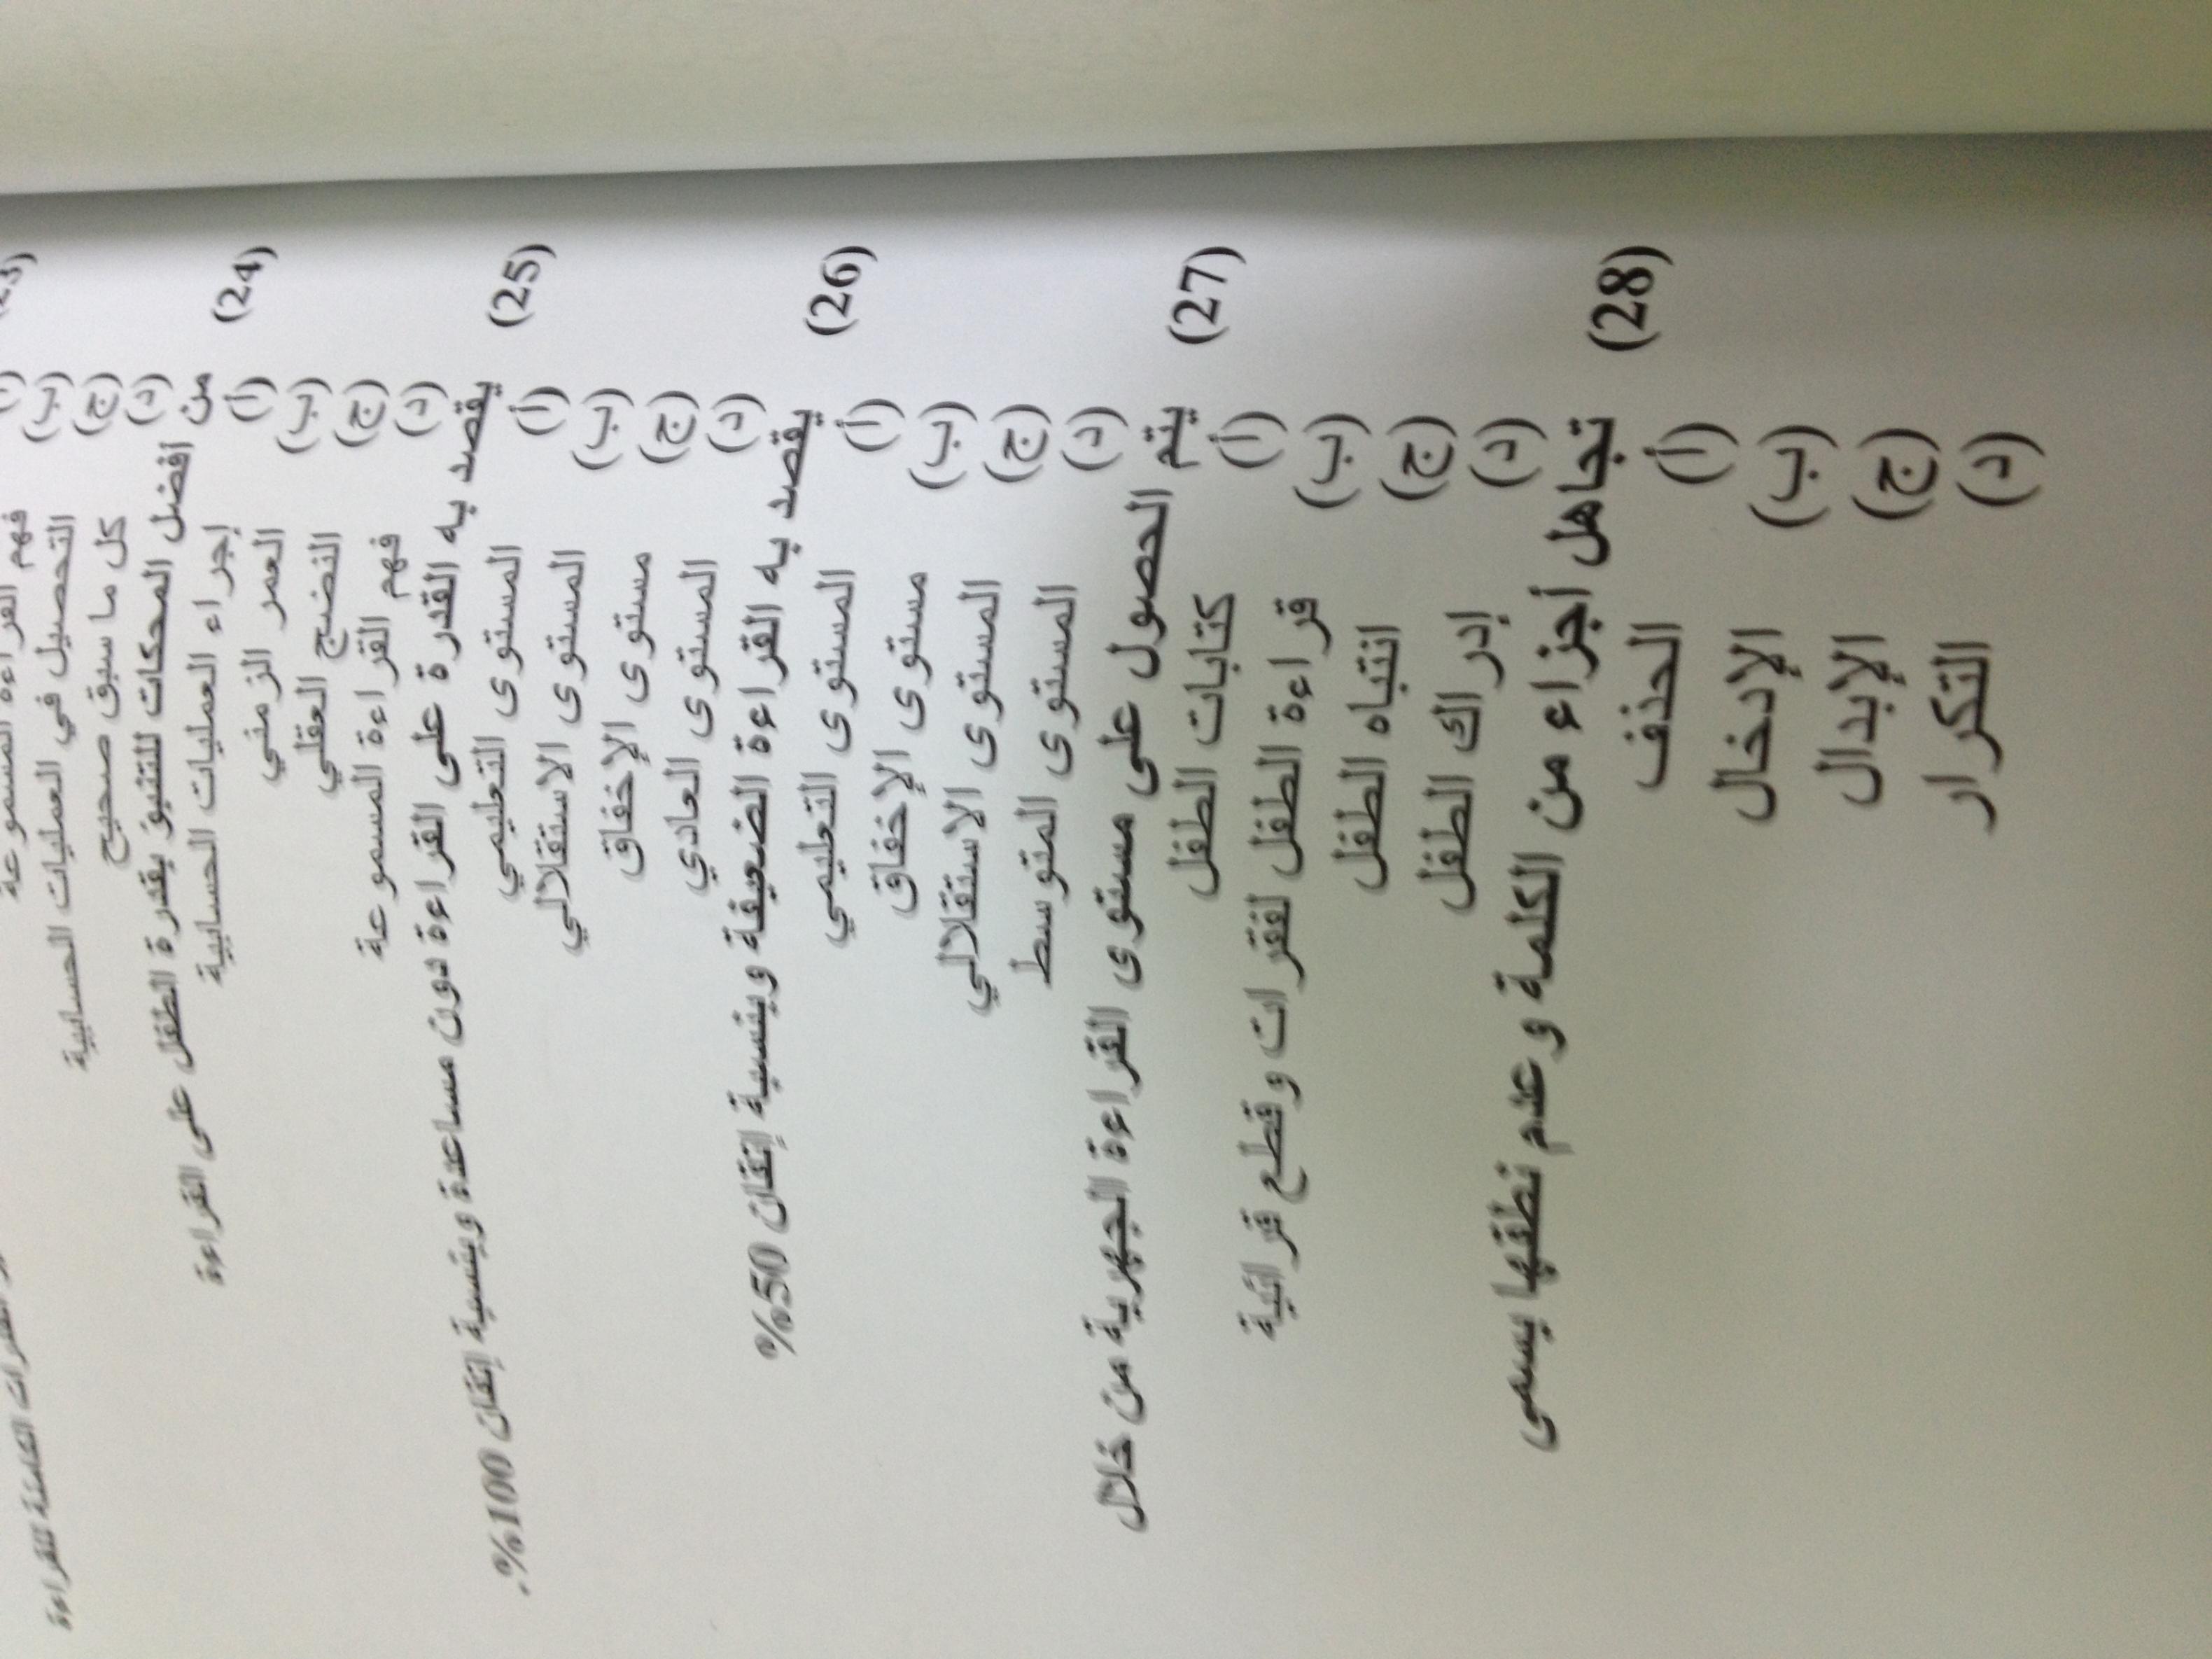 للقراءة
فهم القراءة المسموعة
(ب) التحصيل في العمليات الحسابية
(ج) كل ما سبق صحيح
(د) إجراء العمليات الحسابية
(24) من أفضل المحكات للتنبؤ بقدرة الطفل على القراءة
(أ) العمر الزمني
(ب) النضج العقلي
(ج) فهم القراءة المسموعة
(د)
(25) يقصد به القدرة على القراءة دون مساعدة وبنسبة إتقان 100%.
(أ) المستوى التعليمي
(ب) المستوى الاستقلالي
(ج) مستوى الإخفاق
(د) المستوى العادي
(26) يقصد به القراءة الضعيفة وبنسبة إتقان 50%
(أ) المستوى التعليمي
(ب) مستوى الإخفاق
(ج) المستوى الاستقلالي
(د) المستوى المتوسط
(27) يتم الحصول على مستوى القراءة الجهرية من خلال
(أ) كتابات الطفل
(ب) قراءة الطفل لفقرات وقطع قرائية
(ج) انتباه الطفل
(د) إدراك الطفل
(28) تجاهل أجزاء من الكلمة وعدم نطقها يسمى
(أ) الحذف
(ب) الإدخال
(ج) الإبدال
(د) التكرار